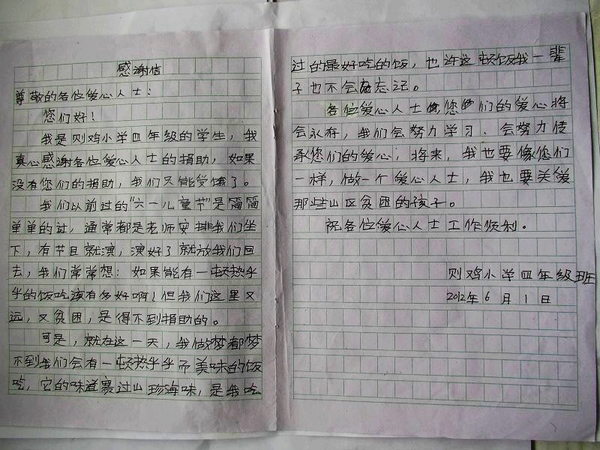 感谢信
尊敬的各位爱心人士：
您们好！
我是则鸡小学四年级的学生，我
真心感谢各位爱心人士的捐助，如果
没有您们的捐助，我们只能受饿了。
我们以前过的“六一儿童节”是简简
单单的过，通常都是老师安排我们坐
下，有节目就演，演好了就放我们回
去，我们常常想：如果能有一顿热乎
乎的饭吃该有多好啊！但我们这里又
远，又贫困，是得不到捐助的。
可是，就在这一天，我做梦都梦
不到我们会有一顿热乎乎而美味的饭
吃，它的味道赛过山珍海味，是我吃
过的最好吃的饭，也许这顿饭我一辈
子也不会忘记。
各位爱心人士您们的爱心将
会永存，我们会努力学习，会努力传
承您们的爱心，将来，我也要像您们
一样，做一个爱心人士，我也要关爱
那些山区贫困的孩子。
祝各位爱心人士工作顺利。
则鸡小学四年级班
2012年6月1日